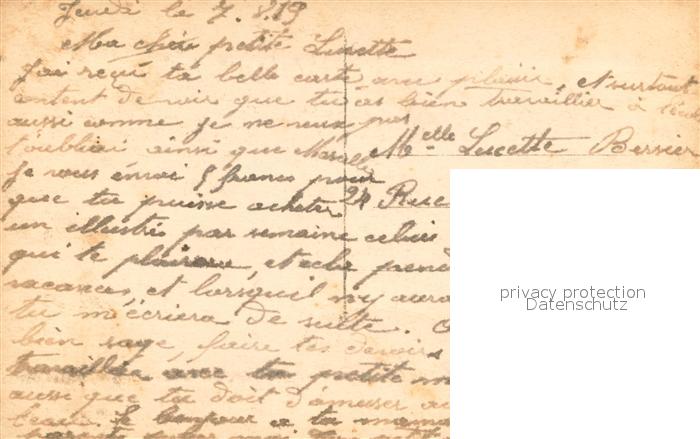 Jeudi le 7.8.19
Ma chère petite Lucette
J'ai reçu ta belle carte avec plaisir, et surtout
content de voir que tu as bien travaillier à l'école
aussi comme je ne veux pas
t'oublier ainsi que
Melle Lucette Bersier
Je vous envoi 5 francs pour
24 Rue
que tu puisse acheter
un illustré par semaine celui
qui te plaira, et cela pend
vacances et lorsqu'il n'y aura
tu m'écriera de suite.
bien sage, faire tes devoirs
travailler avec ta petite
aussi que tu doit d'amuser au
le bonjour a ta mama
privacy protection
Datenschutz